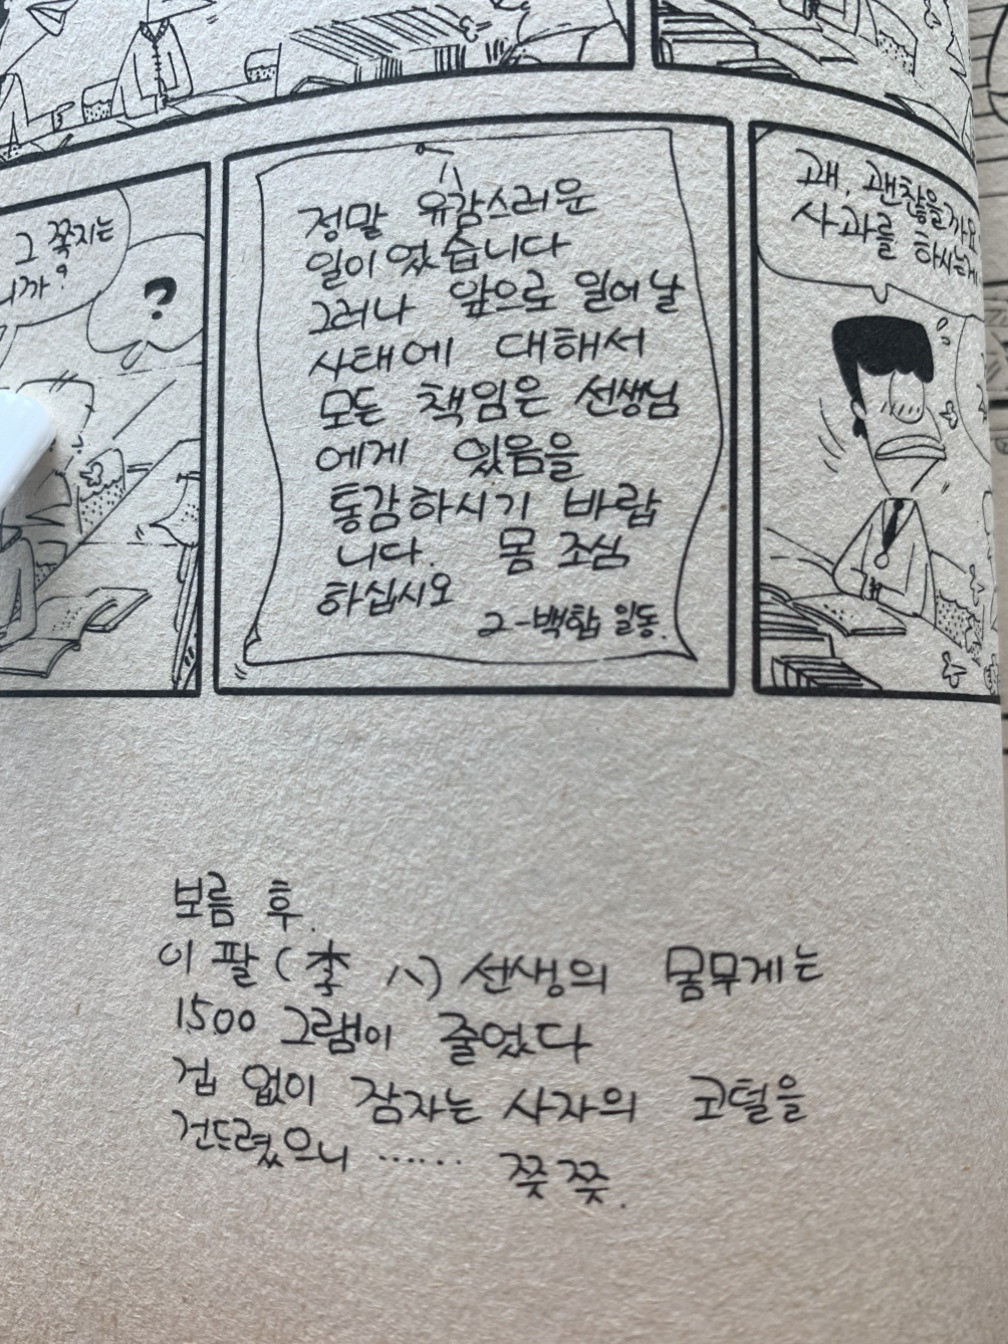 그 쪽지는
니까?
?
정말 유감스러운
일이었습니다
그러나 앞으로 일어날
사태에 대해서
모든 책임은 선생님
에게 있음을
통감하시기 바랍
니다. 몸 조심
하십시오
2-백합 일동.
괘, 괜찮을까요
사과를 하시는게
보름 후.
이 팔(李 八) 선생의 몸무게는
1500 그램이 줄었다
겁 없이 잠자는 사자의 코털을
건드렸으니 …… 쯧쯧.